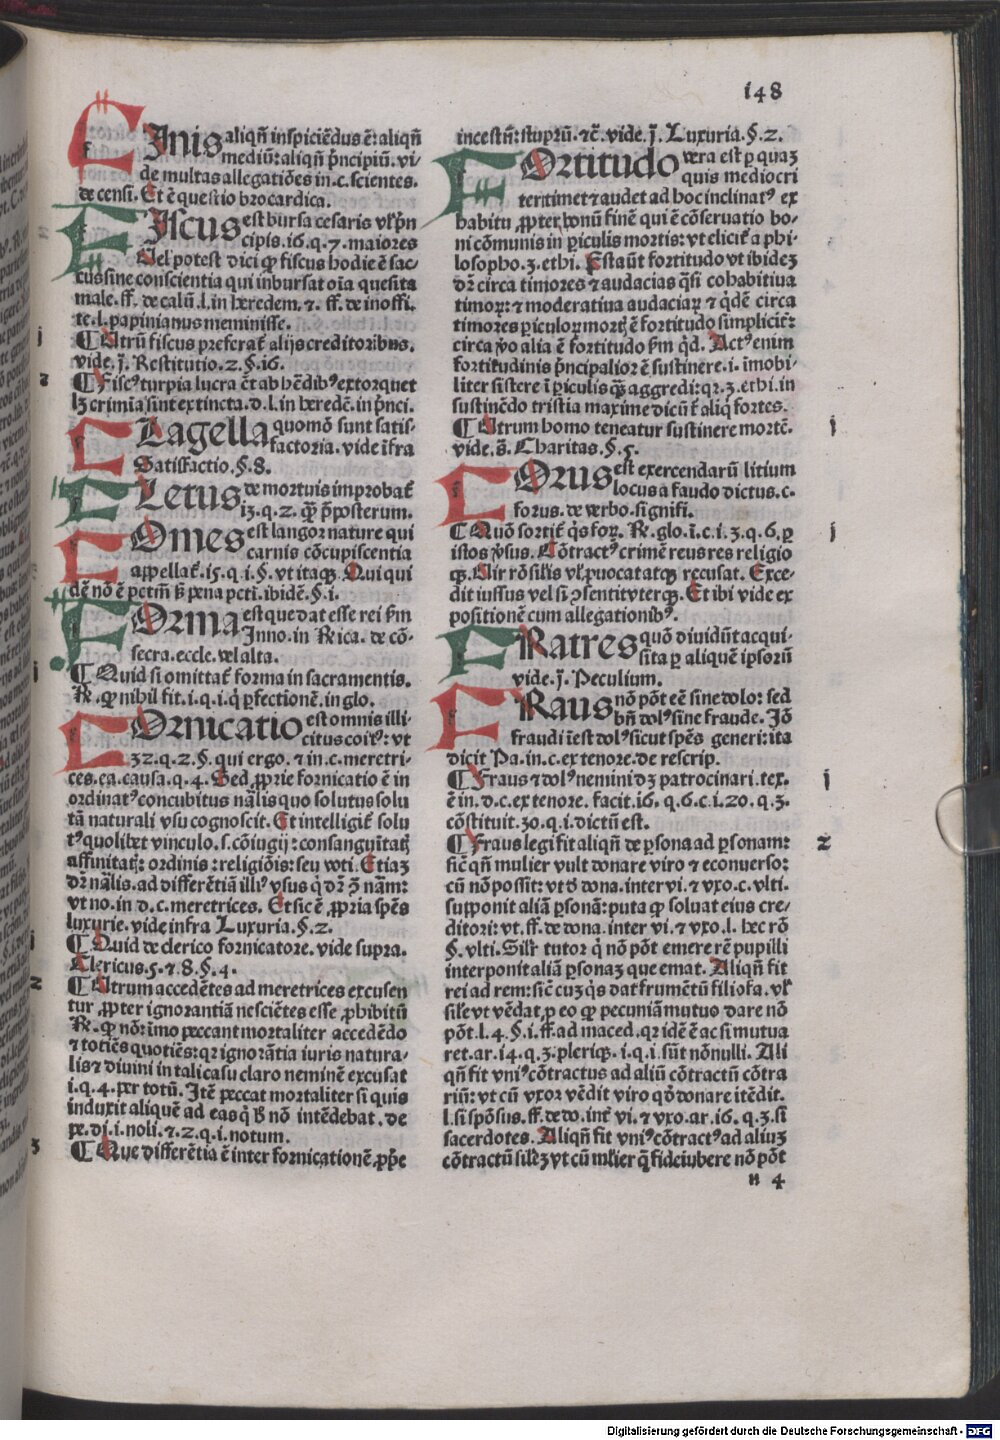 148
FInis aliqñ inspiciẽdus ẽ: aliqñ
mediũ: aliqñ p̃ncipiũ. vi-
de multas allegatiões in .c. scientes.
de censi. Et ẽ questio brocardica.
FIscus est bursa cesaris vl̕ p̃n
cipis. 16. q. 7. maiores
Uel potest dici ꝙ fiscus hodie ẽ sac-
cus sine conscientia qui inbursat oĩa quesita
male. ff. de calũ. l. in heredem. ⁊. ff. de inoffi.
te. l. papinianus meminisse.
¶ Utrũ fiscus preferat᷑ alijs creditoribus.
vide. j̃. Restitutio. 2. §. 16.
¶ Fiscꝰ turpia lucra ẽt ab hẽdibꝰ extorquet
lꝫ crimĩa sint extincta. d. l. in heredẽ. in p̃nci.
FLagella quomõ sunt satis-
factoria. vide ĩfra
Satisfactio. §. 8.
FLetus de mortuis improbat᷑
13. q. 2. q̃ꝫ p̃posterum.
FOmes est langor nature qui
carnis cõcupiscentia
appellat᷑. 15. q. i. §. vt itaqꝫ. Qui qui
dẽ nõ ẽ pctm̃ ß pena pcti. ibidẽ. §. i.
FOrma est que dat esse rei ẜm
Inno. in Rica. de cõ-
secra. eccle. vel alta.
¶ Quid si omittat᷑ forma in sacramentis.
R̃. ꝙ nihil fit. i. q. i. q̇ ꝑfectionẽ. in glo.
FOrnicatio est omnis illi-
citus coitꝰ: vt
32. q. 2. §. qui ergo. ⁊ in .c. meretri-
ces. ea. causa. q. 4. Sed ꝓprie fornicatio ẽ in
ordinatꝰ concubitus nãlis quo solutus solu
tã naturali vsu cognoscit. Et intelligit᷑ solu
tꝰ quolibet vinculo. s. cõiugij: consanguĩtatꝭ
affinitatꝭ: ordinis: religiõis: seu voti. Etiaꝫ
dr̃ nãlis. ad differẽtiã illiꝰ vsus q̇ dr̃ ↄ̃ nãm:
vt no. in d. c. meretrices. Et sic ẽ ꝓpria spẽs
luxurie. vide infra Luxuria. §. 2.
¶ Quid de clerico fornicatore. vide supra.
Clericus. 5. ⁊ 8. §. 4.
¶ Utrum accedẽtes ad meretrices excusen
tur ꝓpter ignorantiã nesciẽtes esse ꝓhibitũ
R̃. ꝙ nõ: ĩmo peccant mortaliter accedẽdo
⁊ totiẽs quotiẽs: qr ignorãtia iuris natura-
lis ⁊ diuini in tali casu claro neminẽ excusat
i. q. 4. per totũ. Itẽ peccat mortaliter si quis
induxit aliquẽ ad eas q̇ ß nõ intẽdebat. de
pe. di. i. noli. ⁊. 2. q. i. notum.
¶ Que differẽtia ẽ inter fornicationẽ ꝓp̃e
incestũ: stuprũ. ⁊c̃. vide. j̃. Luxuria. §. 2.
FOrtitudo vera est ꝑ quaꝫ
quis mediocri
ter timet ⁊ audet ad hoc inclinatꝰ ex
habitu ꝓpter bonũ finẽ qui ẽ cõseruatio bo-
ni cõmunis in ꝑiculis mortis: vt elicit᷑ a phi-
losopho. 3. ethi. Prestaũt fortitudo vt ibideꝫ
dr̃ circa timores ⁊ audacias q̃si cohabitiua
timoꝝ: ⁊ moderatiua audaciaꝝ ⁊ q̇dẽ circa
timores ꝑiculoꝝ mortꝭ ẽ fortitudo simplicit᷑:
circa ṽo alia ẽ fortitudo ẜm q̇d. Actꝰ enim
fortitudinis p̃ncipalior ẽ sustinere. i. ĩmobi-
liter sistere ĩ ꝑiculis q̃ꝫ aggredi: qr. 3. ethi. in
sustinẽdo tristia maxime dicũt᷑ aliq̇ fortes.
¶ Utrum homo teneatur sustinere mortẽ.
vide. s̃. Charitas. §. 5.
FOrus est exercendarũ litium
locus a faudo dictus. c.
forus. de verbo. signifi.
¶ Quõ sortit᷑ q̇s foꝝ. R̃. glo. ĩ. c. i. 3. q. 6. ꝑ
istos ṽsus. Cõtractꝰ crimẽ reus res religio
qꝫ. Uir rõsilis vl̕ ꝓuocat atqꝫ recusat. Exce-
dit iussus vel si ꝯsentit vterqꝫ. Et ibi vide ex
positionẽ cum allegationibꝰ.
FRatres quõ diuidũt acqui-
sita ꝑ aliquẽ ipsorũ
vide. j̃. Peculium.
FRaus nõ põt eẽ sine dolo: sed
bñ dolꝰ sine fraude. Iõ
fraudi ĩest dolꝰ sicut spẽs generi: ita
dicit Pa. in .c. ex tenore. de rescrip.
¶ Fraus ⁊ dolꝰ nemini dꝫ patrocinari. tex.
ẽ in. d. c. ex tenore. facit. 16. q. 6. c. i. 20. q. 3.
cõstituit. 30. q. i. dictũ est.
¶ Fraus legi fit aliqñ de ꝑsona ad ꝑsonam:
sic̃ qñ mulier vult donare viro ⁊ econuerso:
cũ nõ possit: vt ð dona. inter vi. ⁊ vxo. c. vlti.
supponit aliã ꝑsonã: puta ꝙ soluat eius cre-
ditori: vt. ff. de dona. inter vi. ⁊ vxo. l. hec rõ
§. vlti. Silr̃ tutor q̇ nõ põt emere rẽ pupilli
interponit aliã ꝑsonaꝫ que emat. Aliqñ fit
rei ad rem: sic̃ cuꝫ q̇s dat frumẽtũ filiofa. vl̕
sile vt vẽdat ꝑ eo ꝙ pecuniã mutuo dare nõ
põt. l. 4. §. i. ff. ad maced. qr idẽ ẽ ac si mutua
ret. ar. 14. q. 3. pleriqꝫ. i. q. i. sũt nõnulli. Ali
qñ fit vniꝰ cõtractus ad aliũ cõtractũ cõtra
riũ: vt cũ vxor vẽdit viro qḋ donare itẽdit.
l. si spõsus. ff. de do. int᷑ vi. ⁊ vxo. ar. 16. q. 3. si
sacerdotes. Aliqñ fit vniꝰ cõtractꝰ ad aliuꝫ
cõtractũ sileꝫ vt cũ mlier q̃ fideiubere nõ põt
n 4
j
2
i
i
2
3
j
j
j
2
Digitalisierung gefördert durch die Deutsche Forschungsgemeinschaft - DFG